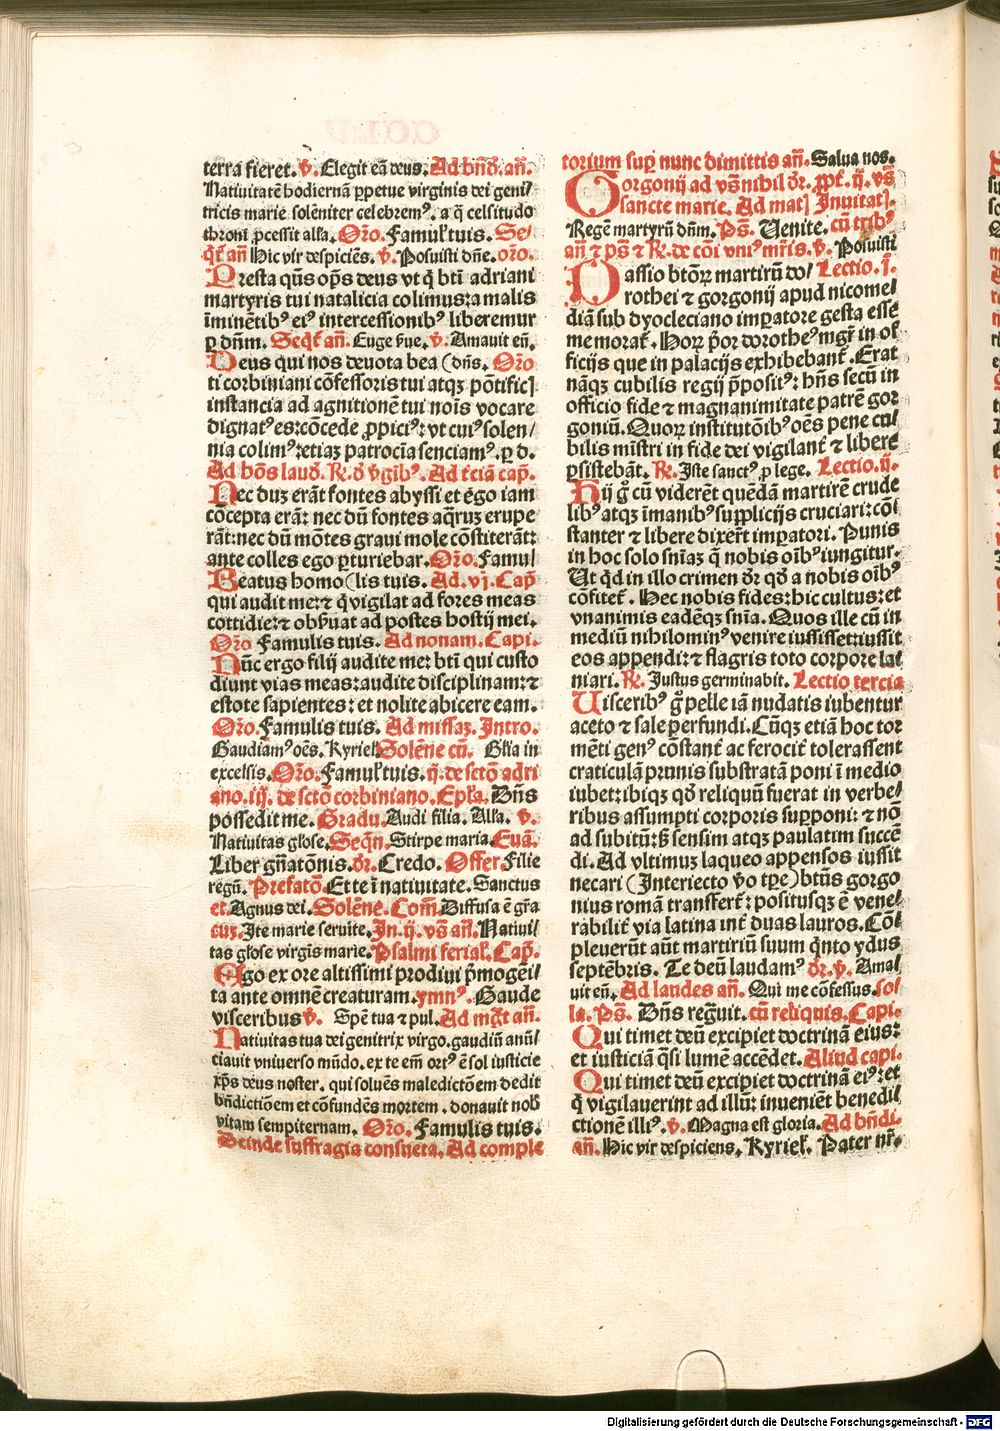 terra fieret. v̄. Elegit eā deus. Ad bn̄d̄. an̄.
Natiuitatē hodiernā ꝑpetue virginis dei geni/
tricis marie solēniter celebremꝰ. a q̄ celsitudo
throni ꝓcessit alła. Oro. Famuł tuis. Se-
q̄t an̄ Hic vir despiciēs. v̄. Posuisti dn̄e. oro.
Presta qūs op̄s deus vt q̄ bti adriani
martyris tui natalicia colimus: a malis
īminētibꝰ eiꝰ intercessionibꝰ liberemur
ꝑ dn̄m. Seq̄t an̄. Euge bue. v̄. Amauit eū.
Deus qui nos deuota bea (dn̄s. Oro
ti corbiniani cōfessoris tui atqꝫ pōtific]
instancia ad agnitionē tui nois vocare
dignatꝰ es: cōcede ꝓpiciꝰ: vt cuiꝰ solen/
nia colimꝰ: etiaꝫ patrocīa senciamꝰ. ꝑ d.
Ad hōs laud̄. R. d̄ v̄gibꝰ. Ad t̄ciā cap̄.
Nec duꝫ erāt fontes abyssi et ego iam
cōcepta erā: nec dū fontes aq̄rꝫ erupe
rāt: nec dū mōtes graui mole cōstiterāt:
ante colles ego ꝑturiebar. Oro. Famu/
Beatus homo (lis tuis. Ad. vj. Cap̄
qui audit me: ⁊ q̄ vigilat ad fores meas
cottidie: ⁊ obſuat ad postes hostij mei.
Oro Famulis tuis. Ad nonam. Capi.
Nūc ergo filij audite me: bti qui custo
diunt vias meas: audite disciplinam: ⁊
estote sapientes: et nolite abicere eam.
Oro. Famulis tuis. Ad missaꝫ. Intro.
Gaudiamꝰ oēs. Kyriel Solēne cū. Glīa in
excelsis. Oro. Famuł tuis. ij. de sctō adri
ano. iij. de sctō corbiniano. Epła. Dn̄s
possedit me. Gradu. Audi filia. Alła. v̄.
Natiuitas głose. Seqn̄. Stirpe maria. Euā.
Liber gn̄atōnis. d̄r. Credo. Offer. Filie
regū. Prefatō. Et te ī natiuitate. Sanctus
et. Agnus dei. Solēne. Com̄. Diffusa ē gr̄a
cuꝫ. Ite marie seruite. In. ij. vs̄ an̄. Natiui/
tas głose virgīs marie. Psalmi feriał. Cap̄.
Ego ex ore altissimi prodiui p̄mogēi/
ta ante omnē creaturam. ymnꝰ. Gaude
visceribus v̄. Spē tua ⁊ pul. Ad mg̅t an̄.
Natiuitas tua dei genitrix virgo. gaudiū anū/
ciauit vniuerso mūdo. ex te em̄ ortꝰ ē sol iusticie
xp̄s deus noster. qui soluēs maledictōem dedit
bn̄dictiōem et cōfundēs mortem. donauit nob̄
vitam sempiternam. Oro. Famulis tuis.
Deinde suffragia consueta. Ad comple
torium sup̄ nunc dimittis an̄. Salua nos.
Gorgonij ad vs̄ nihil d̄r. ꝓpt̄. ij. vs̄
sancte marie. Ad mat] Inuitat].
Regē martyrū dn̄m. Ps̄. Venite. cū tribꝰ
an̄ ⁊ ps̄ ⁊ R. de cōi vniꝰ mr̄is. v̄. Posuisti
Passio btōrꝫ martirū do/ Lectio. j̄.
rothei ⁊ gorgonij apud nicome/
diā sub dyocleciano imꝑatore gesta esse
memorat̄. Horꝫ p̄or dorotheꝰ mgr̄ in of
ficijs que in palacijs exhibebant̄. Erat
nāqꝫ cubilis regij p̄positꝰ: hn̄s secū in
officio fide ⁊ magnanimitate patrē gor
goniū. Quorꝫ institutōibꝰ oēs pene cu/
bilis mīstri in fide dei vigilant̄ ⁊ libere
ꝑsistebāt. R. Iste sanctꝰ ꝓ lege. Lectio. ij.
Hij g̊ cū viderēt quēdā martirē crude
libꝰ atqꝫ īmanibꝰ supplicijs cruciari: cō/
stanter ⁊ libere dixer̄t imꝑatori. Punis
in hoc solo sn̄iaꝫ q̄ nobis oībꝰ iungitur.
Ut qd̄ in illo crimen d̄r qd̄ a nobis oībꝰ
cōfitet̄. Hec nobis fides: hic cultus: et
vnanimis eadēqꝫ sn̄ia. Quos ille cū in
mediū nihilominꝰ venire iussisset: iussit
eos appendi: ⁊ flagris toto corpore la/
niari. R. Justus germinabit. Lectio tercia
Visceribꝰ g̊ pelle iā nudatis iubentur
aceto ⁊ sale ꝑfundi. Cūqꝫ etiā hoc tor
mēti genꝰ cōstant̄ ac ferocit̄ tolerassent
craticulā prunis substratā poni ī medio
iubet: ibiqꝫ qd̄ reliquū fuerat in verbe/
ribus assumpti corporis supponi: ⁊ nō
ad subitū: sꝫ sensim atqꝫ paulatim succē
di. Ad vltimuꝫ laqueo appensos iussit
necari (Interiecto v̊o tp̄e) btūs gorgo
nius romā transfert̄: positusqꝫ ē vene/
rabilit̄ via latina int̄ duas lauros. Cō/
pleuerūt aūt martiriū suum q̄nto ydus
septēbris. Te deū laudamꝰ d̄r. v̄. Ama/
uit eū. Ad laudes an̄. Qui me cōfessus. so/
la. Ps̄. Dn̄s regnuit. cū reliquis. Capi.
Qui timet deū excipiet doctrinā eius:
et iusticiā q̄si lumē accēdet. Aliud capi.
Qui timet deū excipiet doctrinā eiꝰ: et
q̄ vigilauerint ad illū: inuenient benedi/
ctionē illiꝰ. v̄. Magna est gloria. Ad bn̄di.
an̄. Hic vir despiciens. Kyrieł. Pater nr̄.
Digitalisierung gefördert durch die Deutsche Forschungsgemeinschaft - DFG